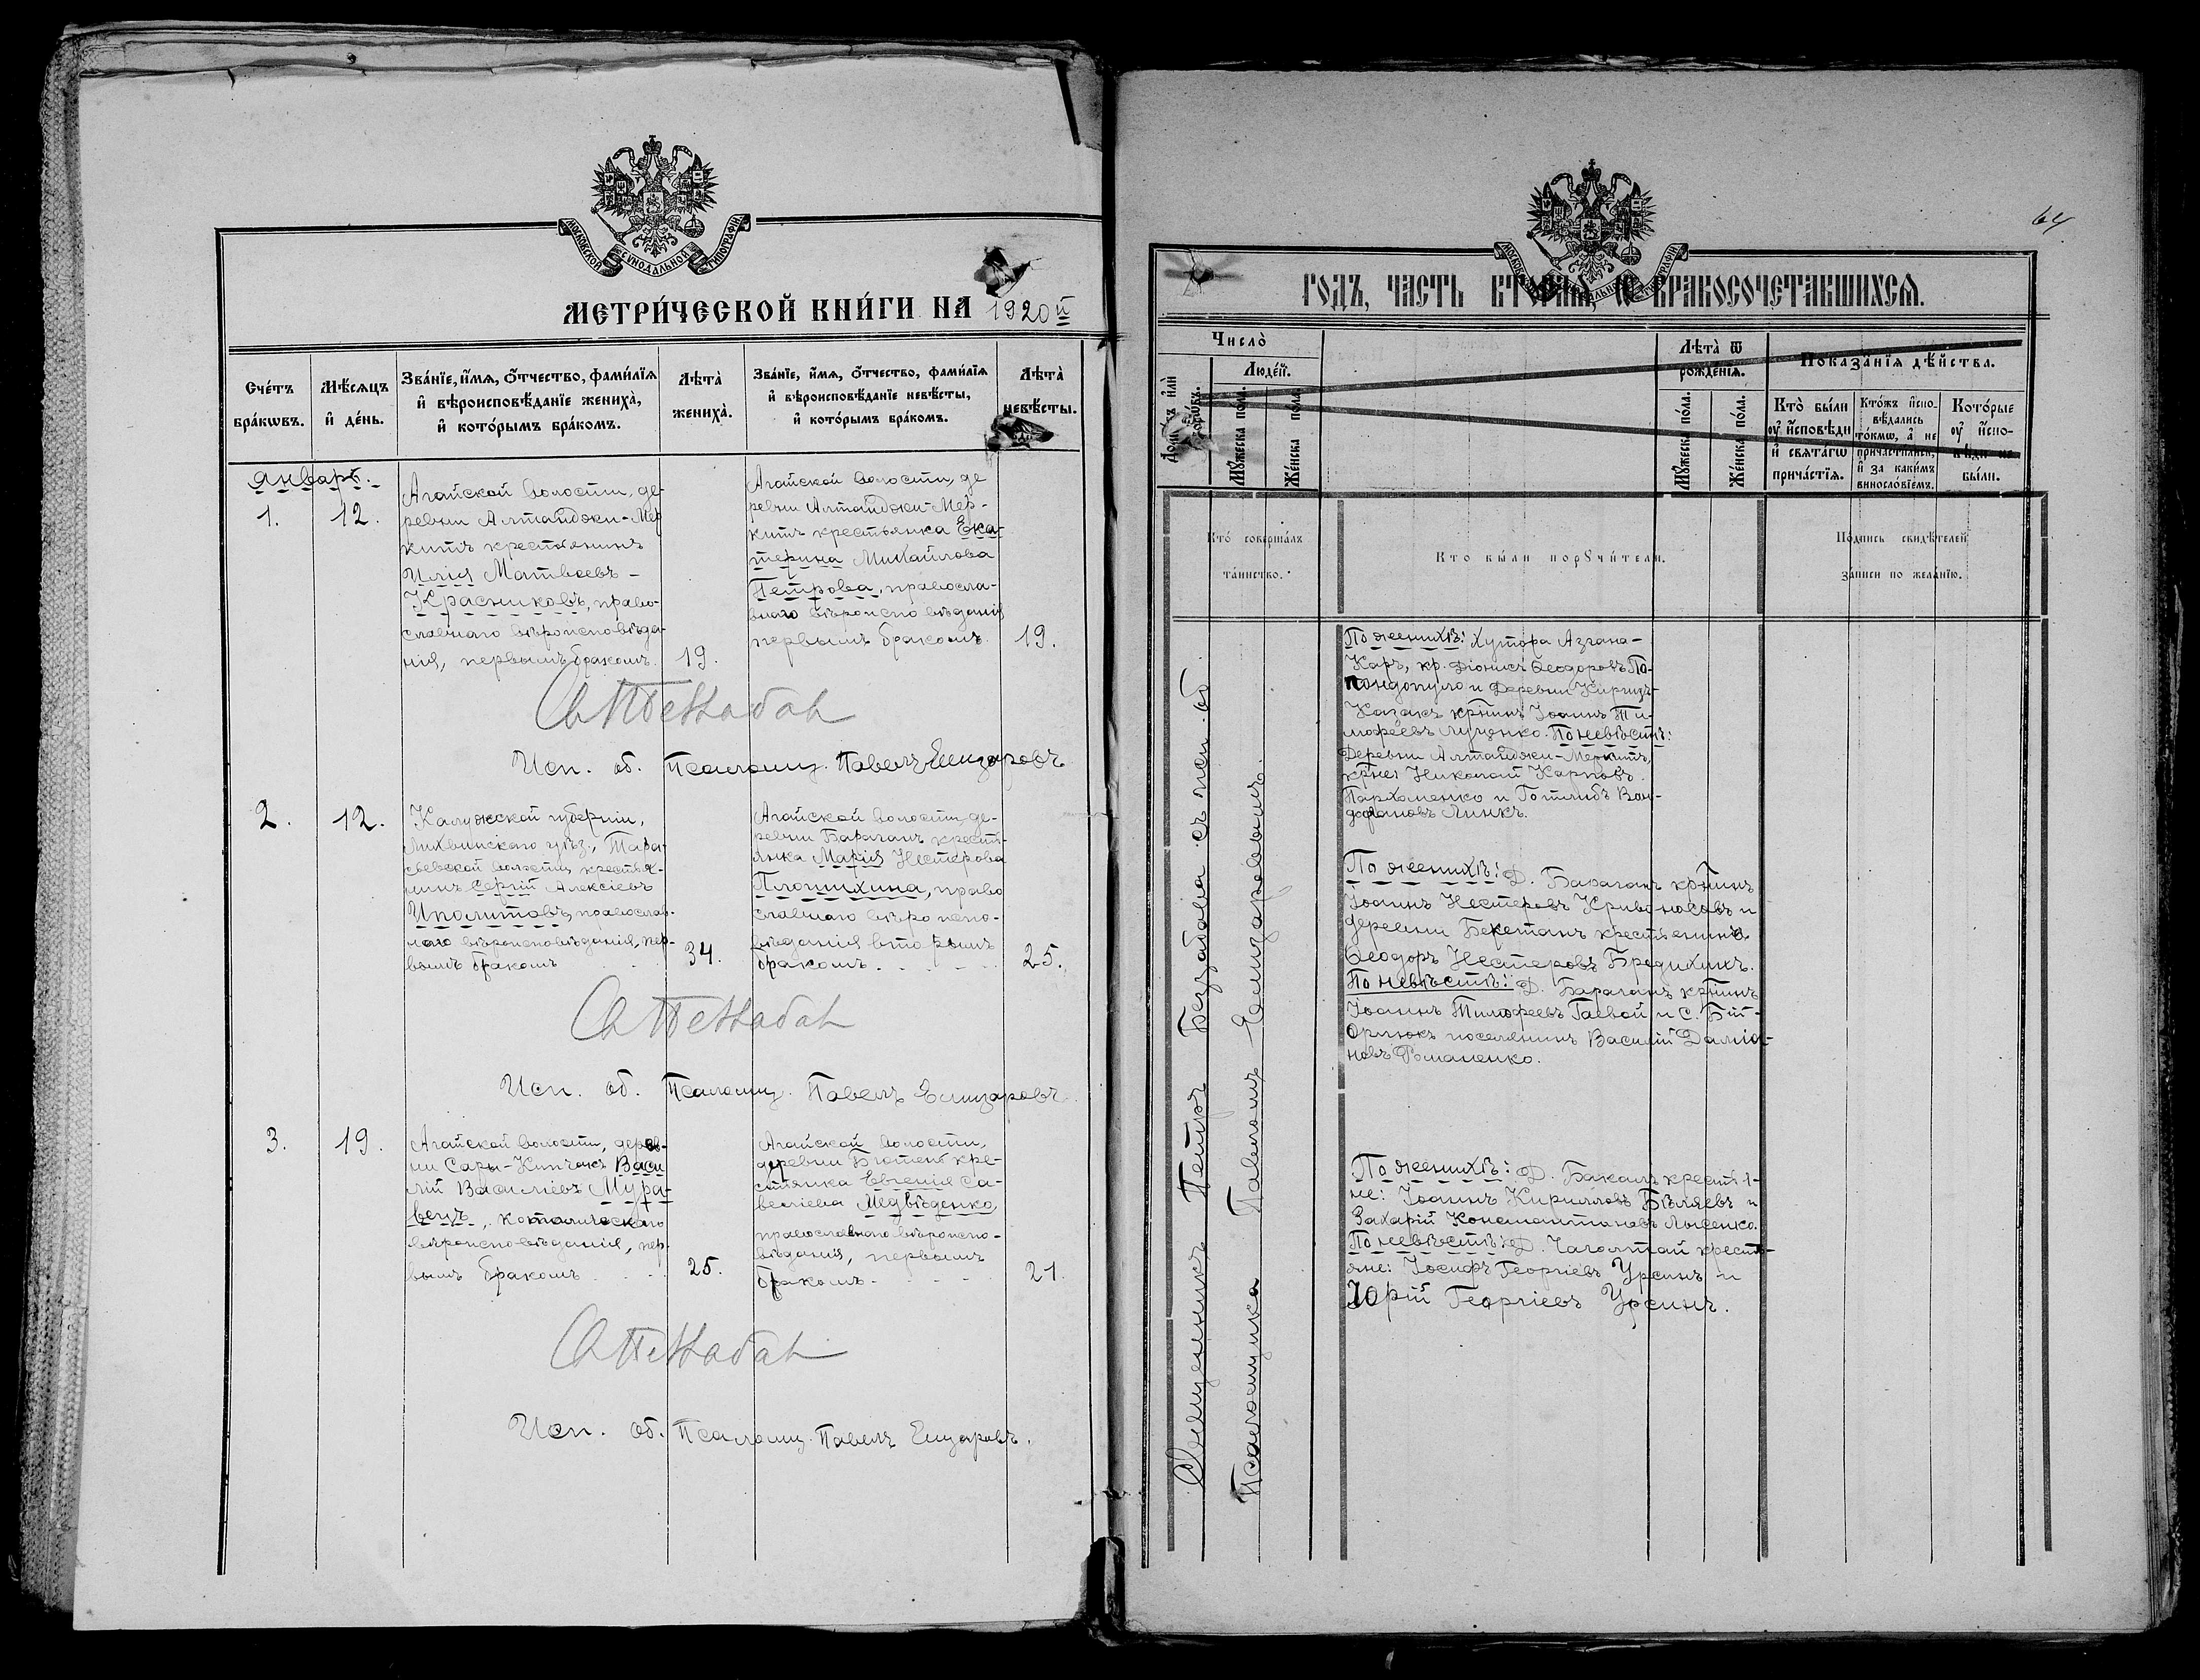 МОСКОВСКОЙ СѴНОДАЛЬНОЙ ТИПОГРАФІИ
МЕТРИ́ЧЕСКОЙ КНИ́ГИ НА 1920й
Счéтъ бра́кѡвъ.
Мѣ́сяцъ и҆ де́нь.
Зва́нїе, и҆́мя, ѻ҆́тчество, фами́лїя
и҆ вѣроисповѣ́данїе жениха̀,
и҆ кото́рымъ бра́комъ.
Лѣ́та жениха̀.
Зва́нїе, и҆́мя, ѻ҆́тчество, фами́лїя
и҆ вѣроисповѣ́данїе невѣ́сты,
и҆ кото́рымъ бра́комъ.
Лѣ́та невѣ́сты.
Январь.
1.
12.
Агайской волости, де-
ревни Алтайджи-Мер
китъ крестьянинъ
Илія Матвѣевъ -
Красниковъ, право-
славнаго вѣроисповѣда-
нія, первымъ бракомъ.
19.
Агайской волости, де
ревни Алтайджи-Мер-
китъ крестьянка Ека-
терина Михайлова
Петрова, правосла-
внаго вѣроисповѣданія
первымъ бракомъ.
19.
Исп. об. Псаломщ. Павелъ Елизаровъ
2.
12.
Калужской губерніи,
Лихвинскаго уѣз., Тара-
сьевской волости, крестья-
нинъ Сергій Алексіевъ
Иполитовъ, православ-
наго вѣроисповѣданія, пер-
вымъ бракомъ
34.
Агайской волости, де-
ревни Бараганъ кресть-
янка Марія Нестерова
Плотихина, право
славнаго вѣроиспо-
вѣданія вторымъ
бракомъ.
25.
Исп. об. Псаломщ. Павелъ Елизаровъ
3.
19.
Агайской волости, дерев-
ни Сары-Кипчакъ Васи
лій Василіевъ Мура-
вецъ, католическаго
вѣроисповѣданія, пер-
вымъ бракомъ
25.
Агайской волости,
деревни Бютень кре-
стьянка Евгенія Са-
веліева Медвѣденко,
православнаго вѣроиспо-
вѣданія, первымъ
бракомъ
21.
Исп. об. Псаломщ. Павелъ Елизаровъ.
64
ГОДЪ, ЧАСТЬ ВТОРАЯ, Ѡ БРАКОСОЧЕТАВШИХСЯ.
Число̀
Люде́й.
Мꙋ́жеска по́ла.
Же́нска по́ла.
Лѣ́та ѿ рожде́нїя.
Мꙋ́жеска по́ла.
Же́нска по́ла.
Показа́нїя дѣ́йства.
Кто̀ бы́ли
ᲂу҆ и҆́сповѣди
и҆ свята́гѡ
прича́стїя.
Кто́жъ и҆спо-
вѣ́дались
то́кмѡ, а҆ не
причасти́лись,
и҆ за каки́мъ
винословїемъ.
Кото́рые
ᲂу҆ и҆́спо-
вѣди не
бы́ли.
Кто́ соверша́лъ
та́инство.
Кто бы́ли порꙋчи́тели.
По́дпись свидѣ́телей
за́писи по жела́нїю.
Священникъ Петръ Беззабава съ исп. об.
Псаломщика Павломъ Елизаровымъ.
По женихѣ: Хутора Азгана-
Каръ, кр. Діонисъ Ѳеодоровъ По-
пондопуло и деревни Киргизъ-
Казакъ крнинъ Іоаннъ Ти-
мофеевъ Луценко. По невѣстѣ:
Деревни Алтайджи-Меркитъ,
крне: Николай Карповъ
Пархоменко и Готлибъ Ван-
дофановъ Линкъ.
По женихѣ: Д. Бараганъ крнинъ
Іоаннъ Нестеровъ Кривоносовъ и
деревни Бекетанъ крестьянинъ
Ѳеодоръ Нестеровъ Бредихинъ.
По невѣстѣ: Д. Бараганъ крнинъ
Іоаннъ Тимофеевъ Гаевой и С. Бій-
Орлюкъ поселянинъ Василій Даміа-
новъ Романенко.
По женихѣ: Д. Бакалъ крестья-
не: Іоаннъ Кирилловъ Бѣляевъ и
Захарій Константиновъ Лысенко.
По невѣстѣ: Д. Чаголтай кресть-
яне: Іосифъ Георгіевъ Урсинъ и
Юрій Георгіевъ Урсинъ.